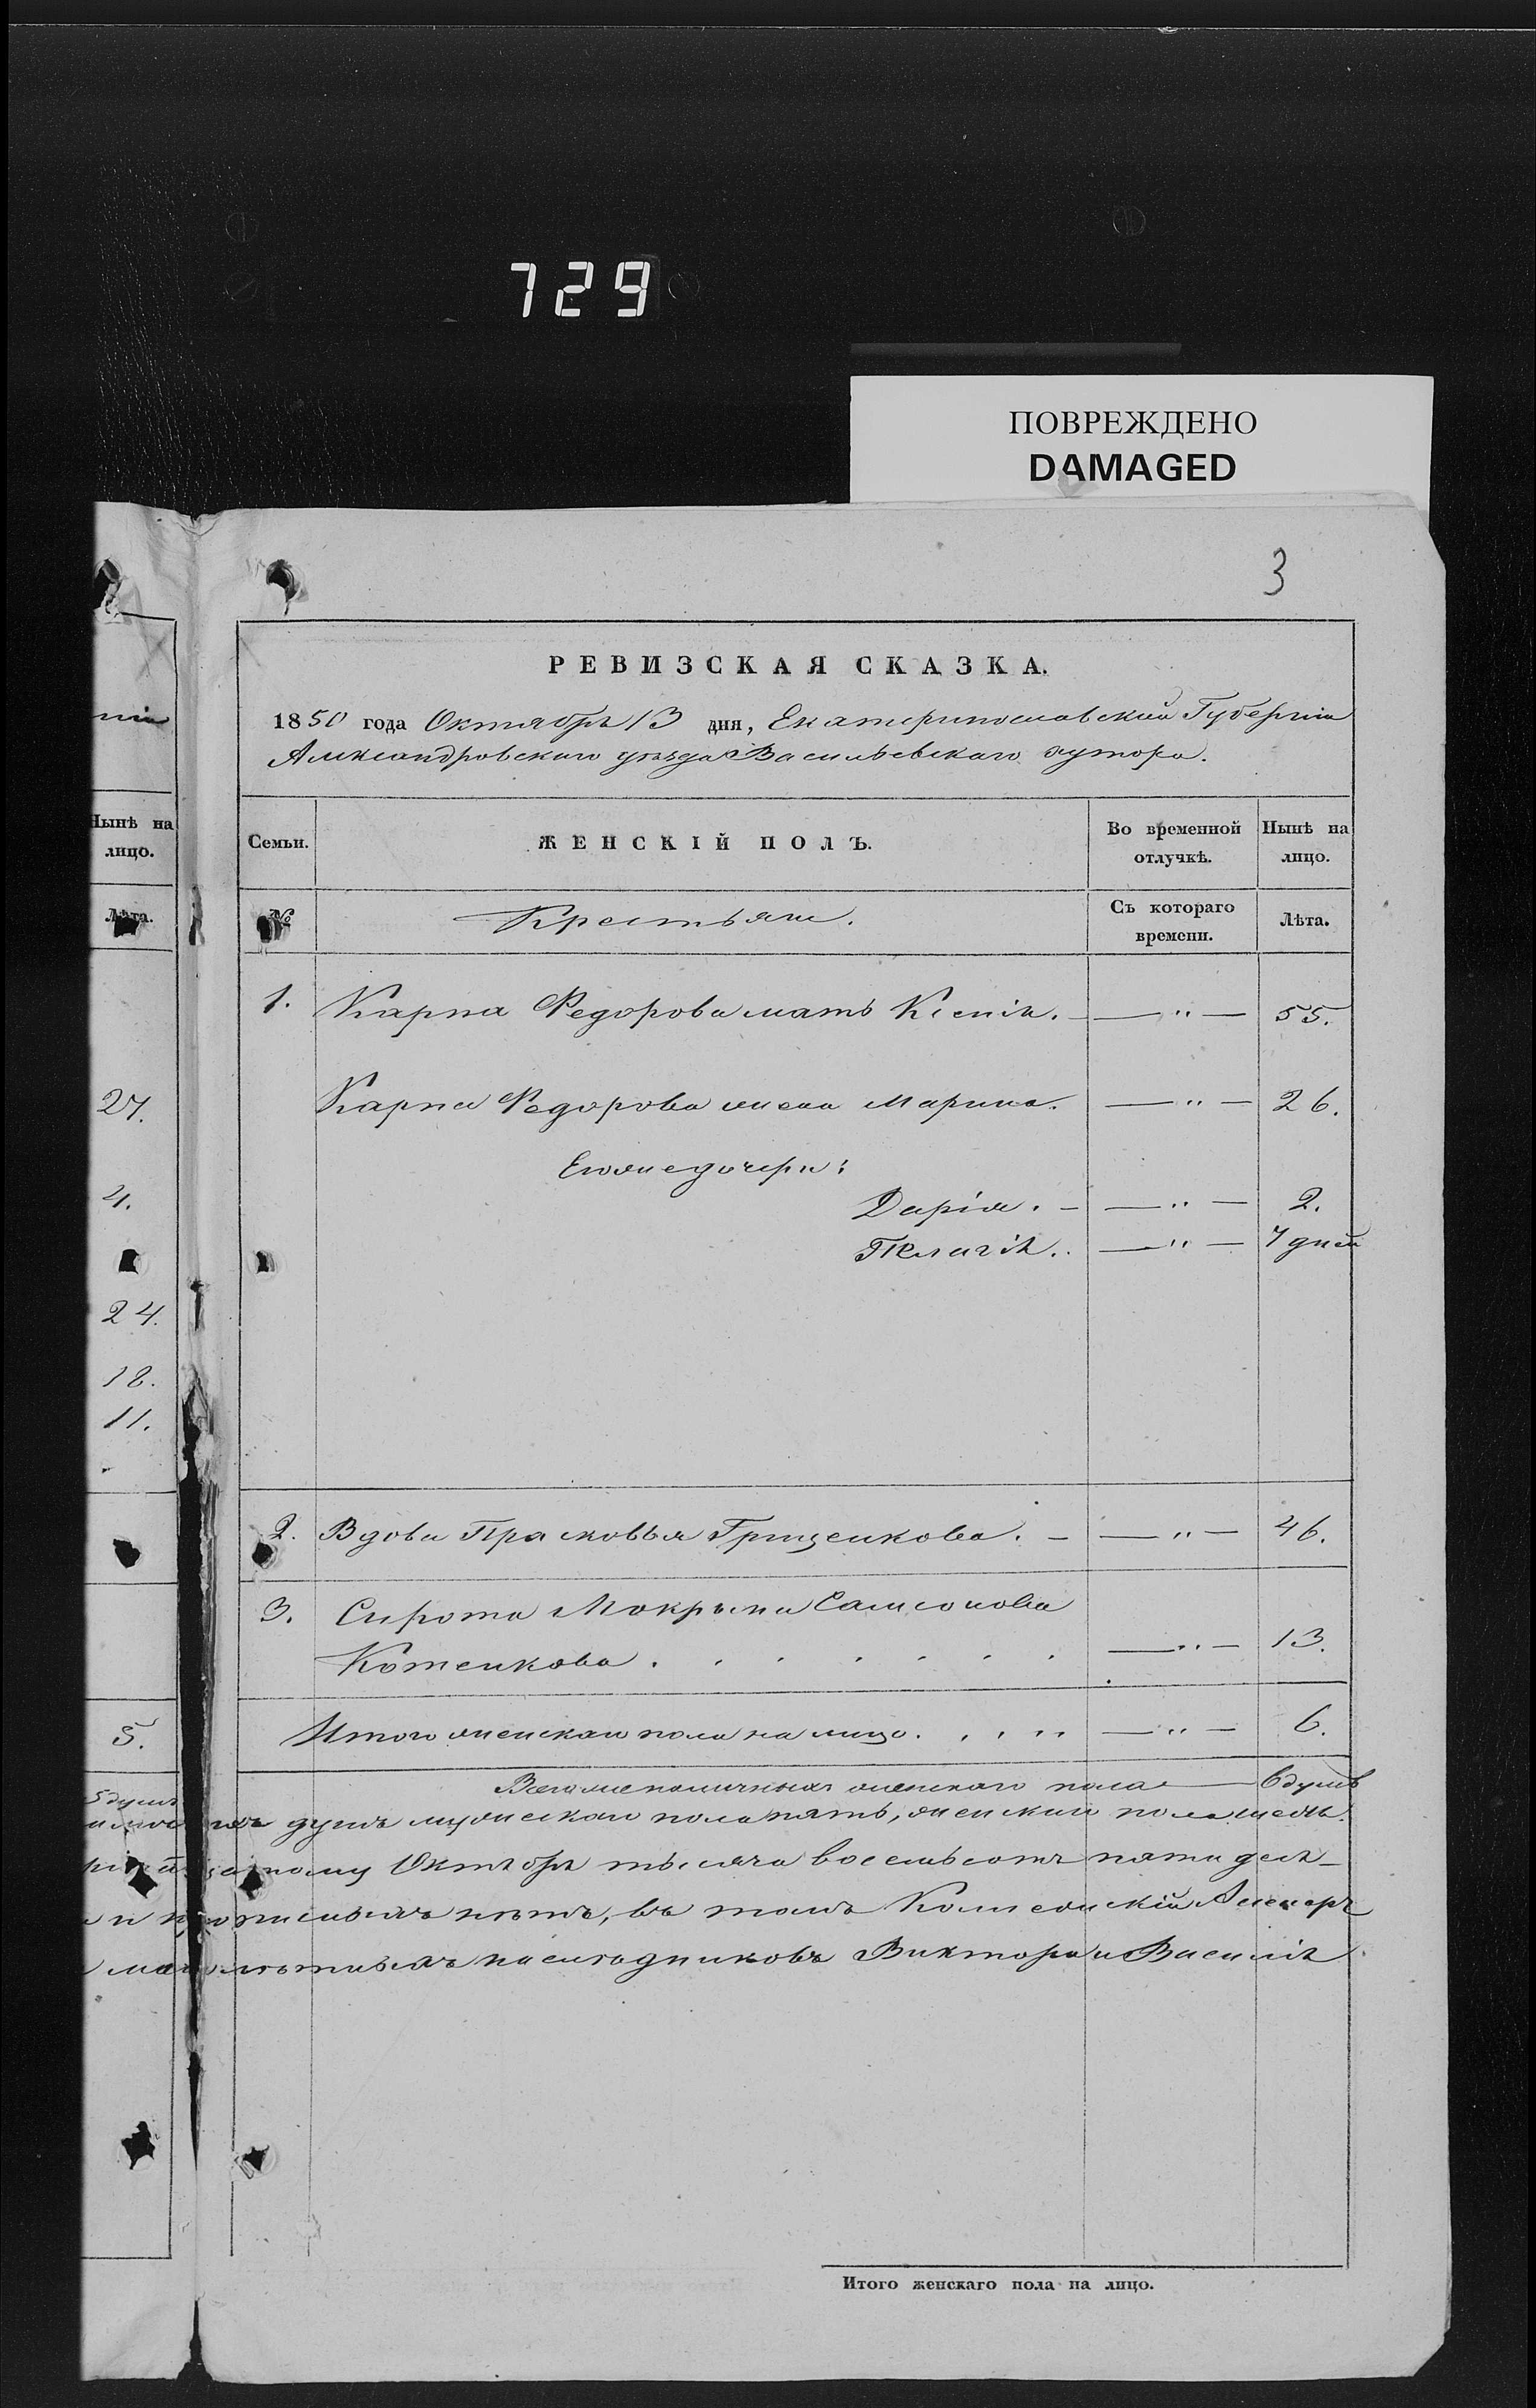 729
ПОВРЕЖДЕНО
DAMAGED
3
РЕВИЗСКАЯ СКАЗКА.
1850 года Октября 13 дня, Екатеринославской Губерніи
Александровскаго уѣзда Васильевскаго хутора.
Нынѣ на
лицо.
Лѣта.
27.
4.
24.
18.
11.
5.
5 душъ
Семьи.
ЖЕНСКІЙ ПОЛЪ.
Во временной
отлучкѣ.
Нынѣ на
лицо.
№
Крестьяне.
Съ котораго
времени.
Лѣта.
1. Карпа Федорова мать Ксенія. — " — 55.
Карпа Федорова жена Марина. — " — 26.
Его же дочери:
Дарія. — — " — 2.
Пелагія. — " — 7 дней
2. Вдова Прасковья Гриценкова. — — " — 46.
3. Сирота Мокрына Самсонова
Котенкова . . . . . . . — " — 13.
Итого женскаго пола на лицо. . . . . — " — 6.
Всего же наличныхъ женскаго пола — 6 душъ
душъ мужескаго пола пять, женскаго пола шесть.
Октября тысяча восемьсотъ пяти деся-
нѣтъ, въ томъ Коллежскій Асесоръ
наследниковъ Виктора и Василія
Итого женскаго пола на лицо.